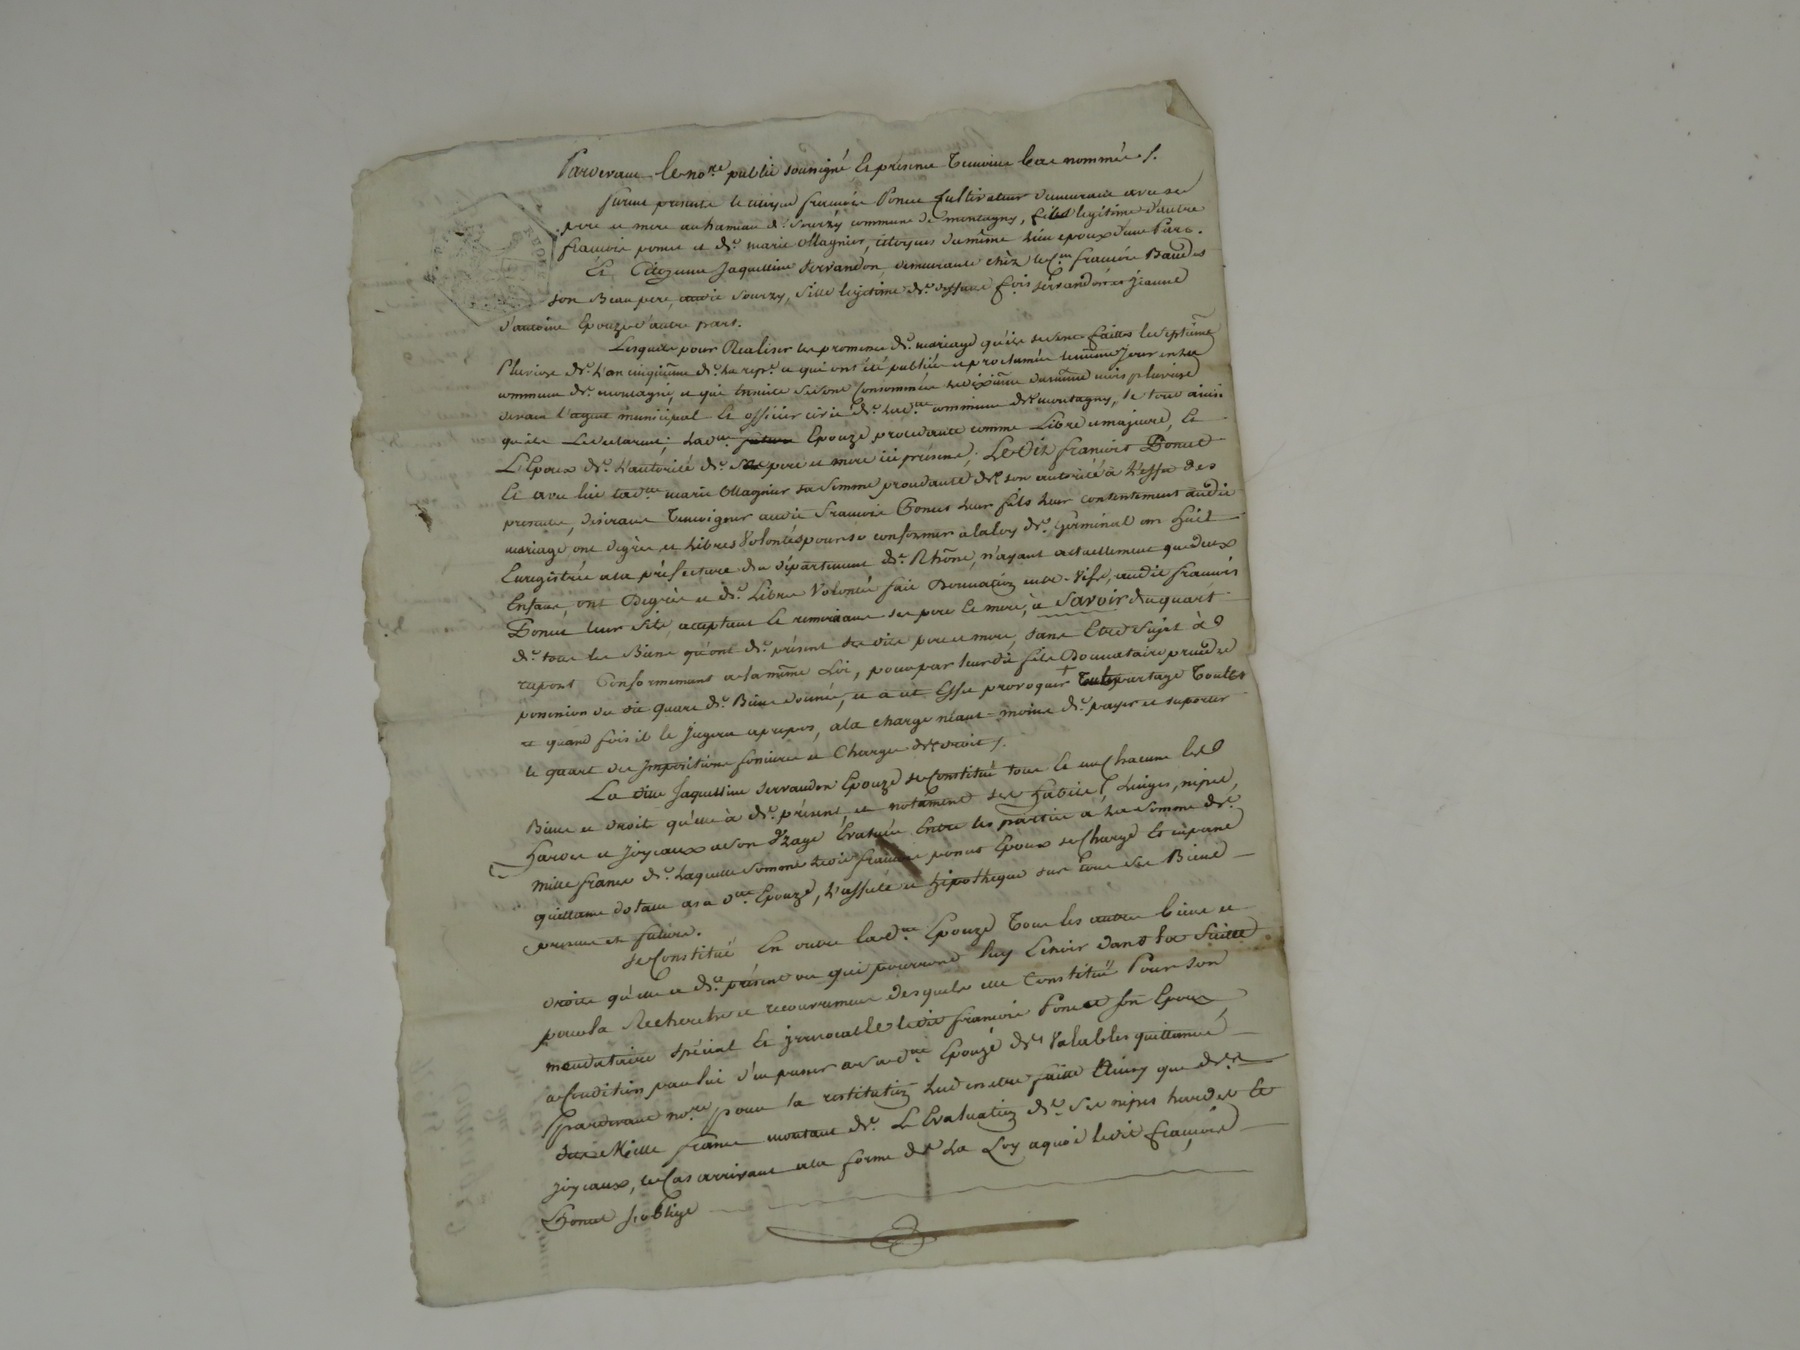 Pardevant le no.re public soussigné Et présens Temoins bas nommés /.
furent présents le citoyen francois Ponce Cultivateur demeurant avec ses
pere et mere au hamau de Sourzy commune de montagny, fils legitime d'autre
francois ponce et de marie Magnier, citoyens du même lieu epoux d'une Part.
Et Citoyenne Jaquelline servandon demeurante chéz le C.en francois Baudes
son Beau pere, audit Sourzy, fille legitime de deffunt f.çois servandon et Jeanne
d'antoine Epouze d'autre part.
Lesquels pour Realiser les promesses de mariage qu'ils se sont faittes le septieme
Pluviose de L'an cinquieme de La rep.e et qui ont été publiées et proclamées le même Jour en la
commune de montagni, et qui Ensuite se sont Consommées le dixieme du même mois pluviose
devant l'agent municipal Et officier civil de La d.te commune de montagny, le tout ainsi
qu'ils Le declarent; La d.te Epouze procedante comme Libre et majeure, Et
L'Epoux de L'autorité de ses pere et mere ici présens, Le dit francois Ponce
Et avec lui la d.te marie Magnier sa femme procedante de son autorité à L'effet des
présentes, desirant Temoigner audit francois Ponce leur fils leur consentement audit
mariage ont de grés et Libres Volontés pour se conformer a la loy de Germinal an huit
Enregistrée a la préfecture du département du Rhône, n'ayant actuellement que deux
Enfans, ont De grés et de Libre Volonté fait Donnation entre Vifs, audit francois
Ponce leur fils, acceptant Et remerciant ses pere Et mere, à Savoir du quart
de tous les Biens qu'ont de présent ses dits pere et mere, sans Etre Sujet à
raport Conformement a la même Loi, pour par leur dit fils Donnataire prendre
possession du dit quart de Biens donnés, et à cet Effet provoquer partage Toutes
et quand fois il le Jugera apropos, a la charge néant-moins de payer et suporter
le quart des Impositions foncieres et Charges de droit /.
La ditte Jaquelline servandon Epouze se Constitue tous Et un Chacuns les
Biens et droits qu'elle à de présent, et notament ses habits, Linges, nipes,
hardes et Joyeaux a son Uzage Evalués Entre les parties a La Somme de
mille francs de Laquelle Somme Ledit francois ponce Epoux se Charge Et en passe
quittance dotale a sa d.te Epouze, L'assure et hipotheque sur tous ses Biens
présens et futurs.
se Constitue En outre la d.te Epouze Tous les autres biens et
droits qu'elle a de présent ou qui pourront Luy Echoir dans la Suitte
pour la Recherche et recouvrement desquels elle Constitue Pour son
mandataire Spécial Et irrevocable ledit francois Ponce son Epoux,
a Condition par lui d'en passer a sa d.te Epouze des Valables quittances
Pardevant no.re pour la restitution Lui en etre faitte Ainsy que des
dits Mille francs montant de L'Evaluation de ses nipes hardes Et
Joyeaux, le Cas arrivant a la forme de La Loy a quoi ledit francois
Ponce s'oblige